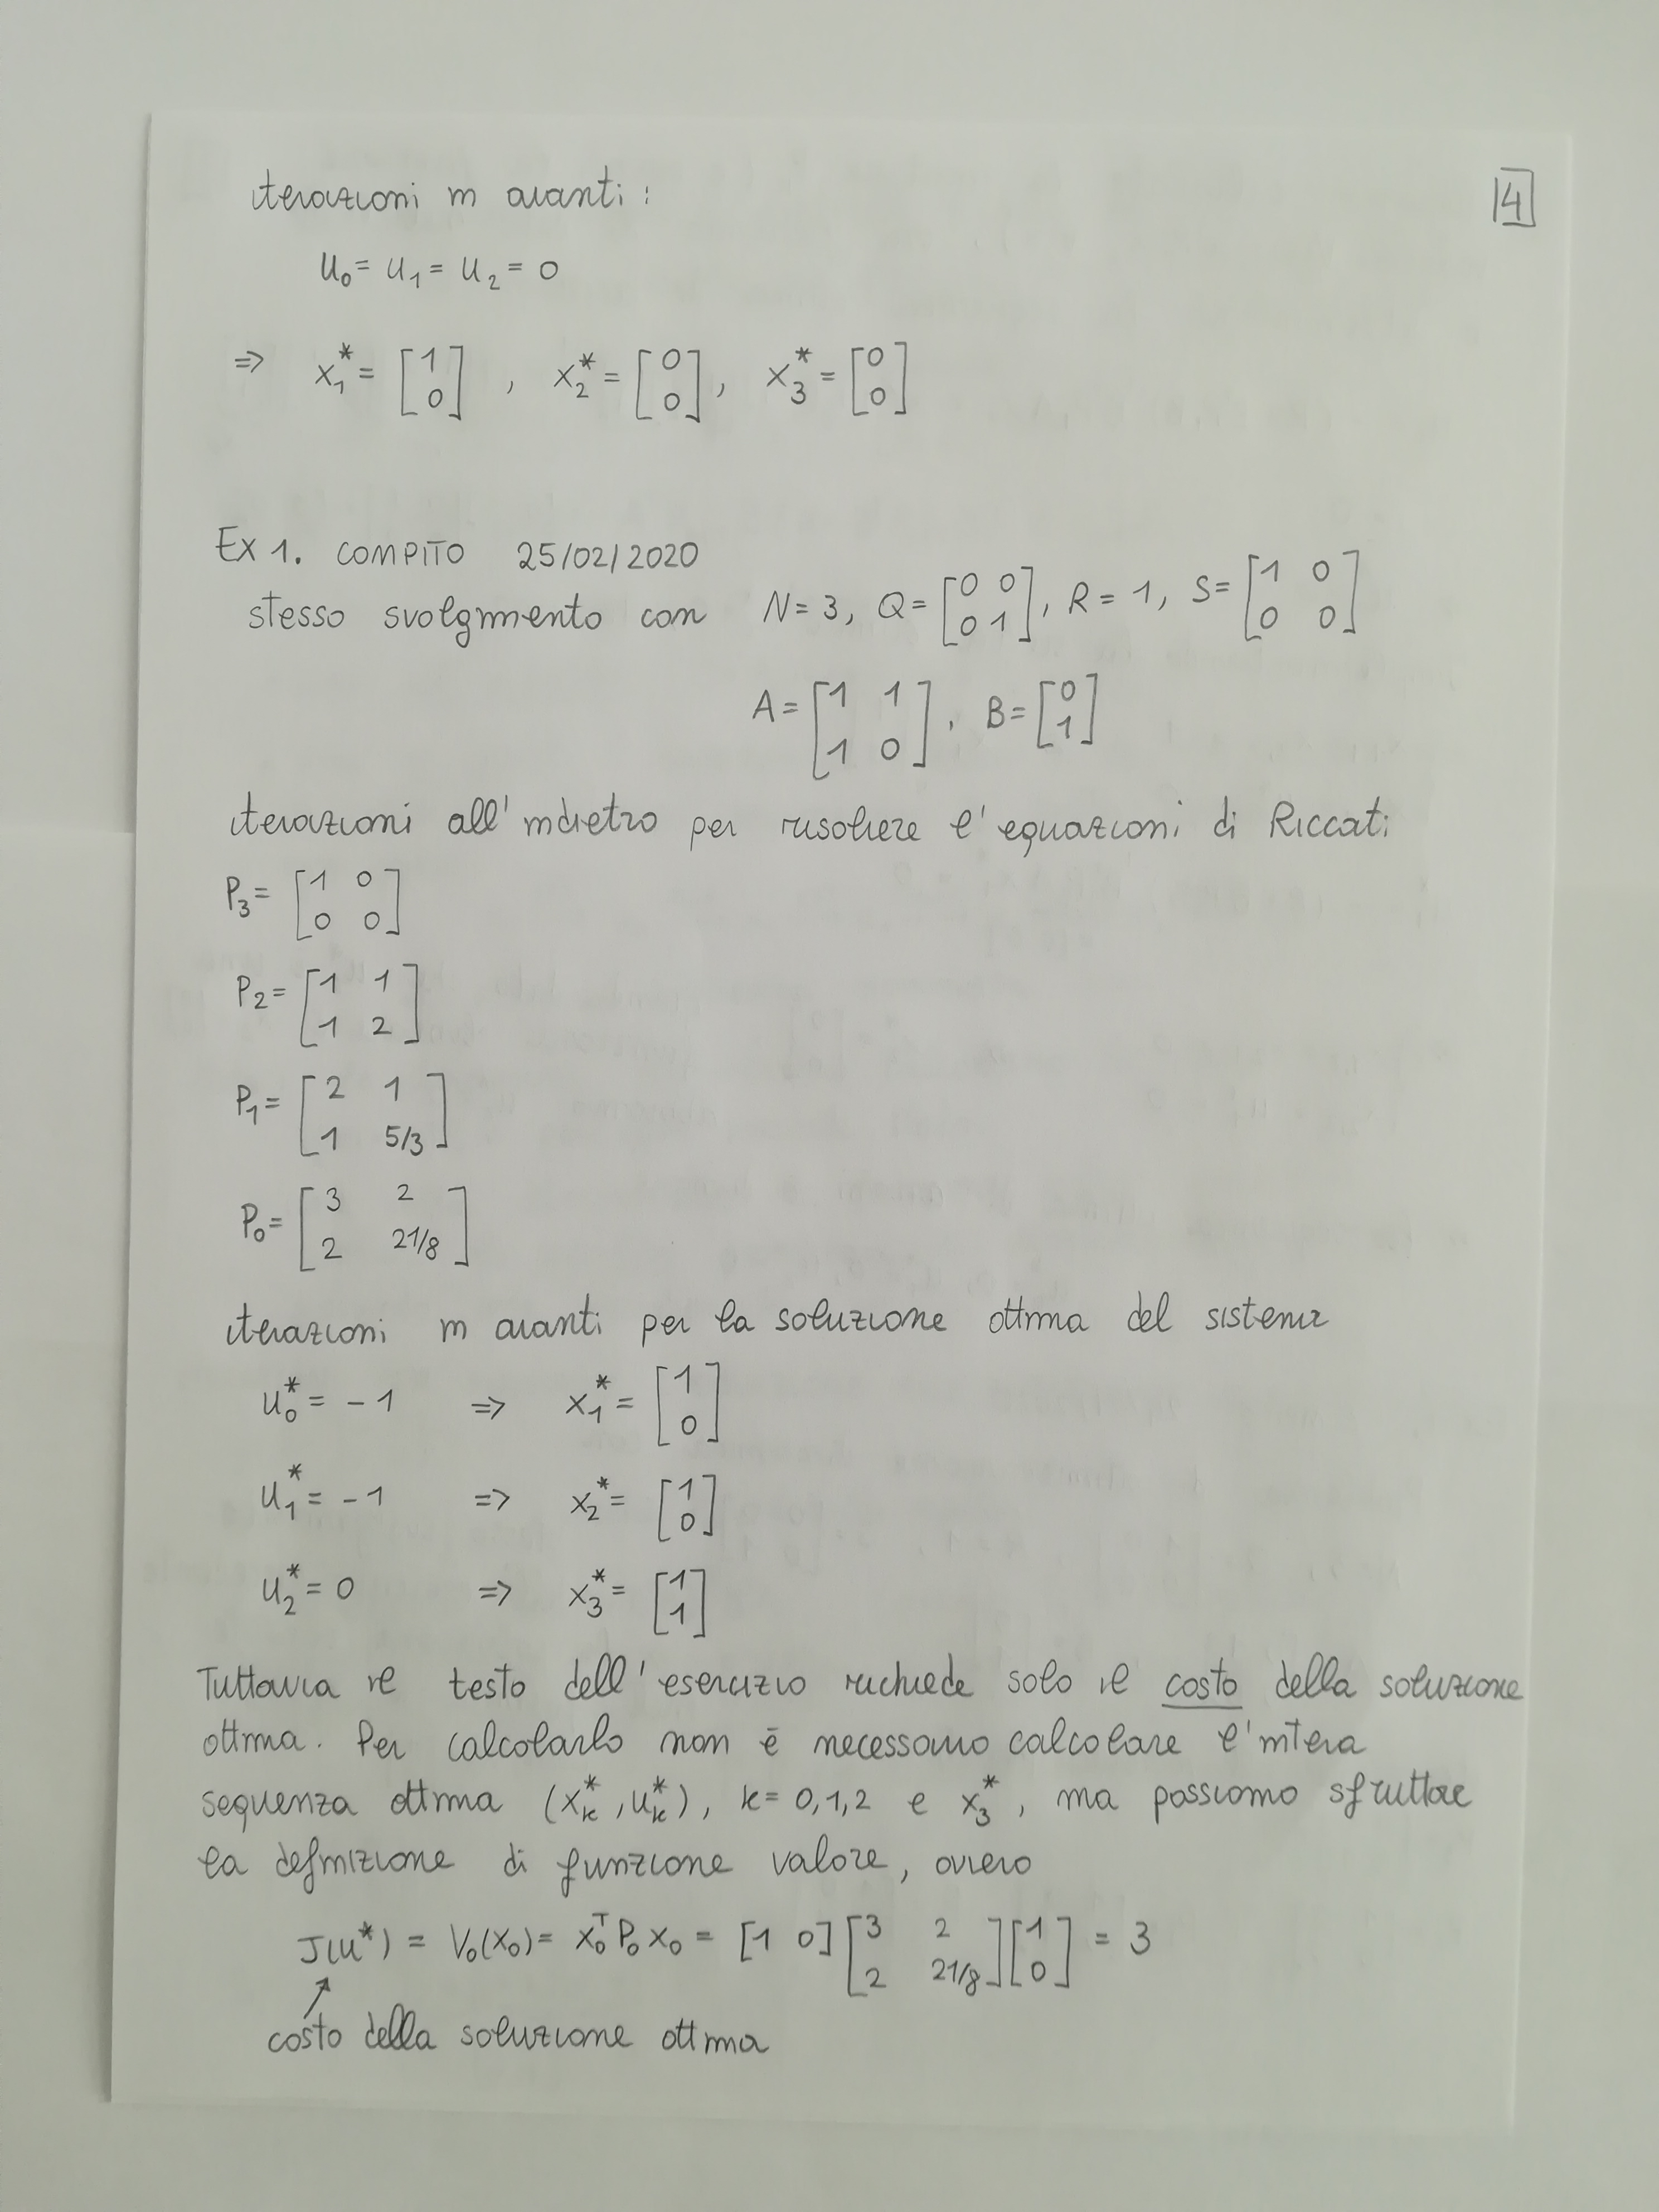 iterazioni in avanti :
4
u₀ = u₁ = u₂ = 0
⇒ x₁* = [1 0] , x₂* = [0 0] , x₃* = [0 0]
Ex 1. COMPITO 25/02/2020
stesso svolgimento con N = 3, Q = [0 0; 0 1], R = 1, S = [1 0; 0 0]
A = [1 1; 1 0] , B = [0; 1]
iterazioni all'indietro per risolvere l'equazioni di Riccati
P₃ = [1 0; 0 0]
P₂ = [1 1; 1 2]
P₁ = [2 1; 1 5/3]
P₀ = [3 2; 2 21/8]
iterazioni in avanti per la soluzione ottima del sistema
u₀* = -1 ⇒ x₁* = [1; 0]
u₁* = -1 ⇒ x₂* = [1; 0]
u₂* = 0 ⇒ x₃* = [1; 1]
Tuttavia il testo dell'esercizio richiede solo il costo della soluzione
ottima. Per calcolarlo non è necessario calcolare l'intera
sequenza ottima (xₖ*, uₖ*), k = 0,1,2 e x₃*, ma possiamo sfruttare
la definizione di funzione valore, ovvero
J(u*) = V₀(x₀) = x₀ᵀ P₀ x₀ = [1 0] [3 2; 2 21/8] [1; 0] = 3
costo della soluzione ottima